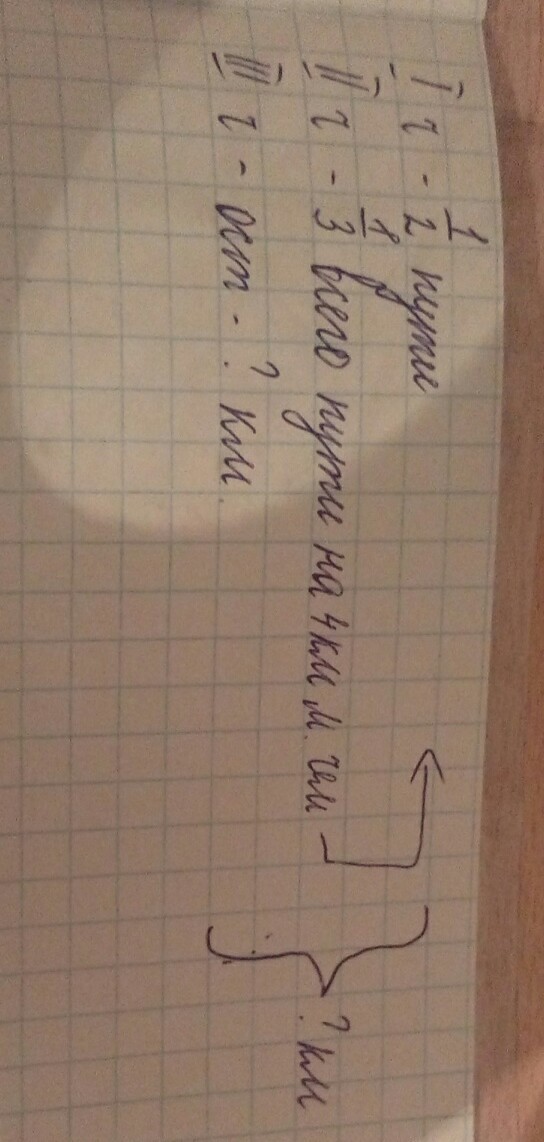 I ч - 1/2 пути
II ч - 1/3 всего пути на 4 км м. чем
III ч - ост - ? км.
? км